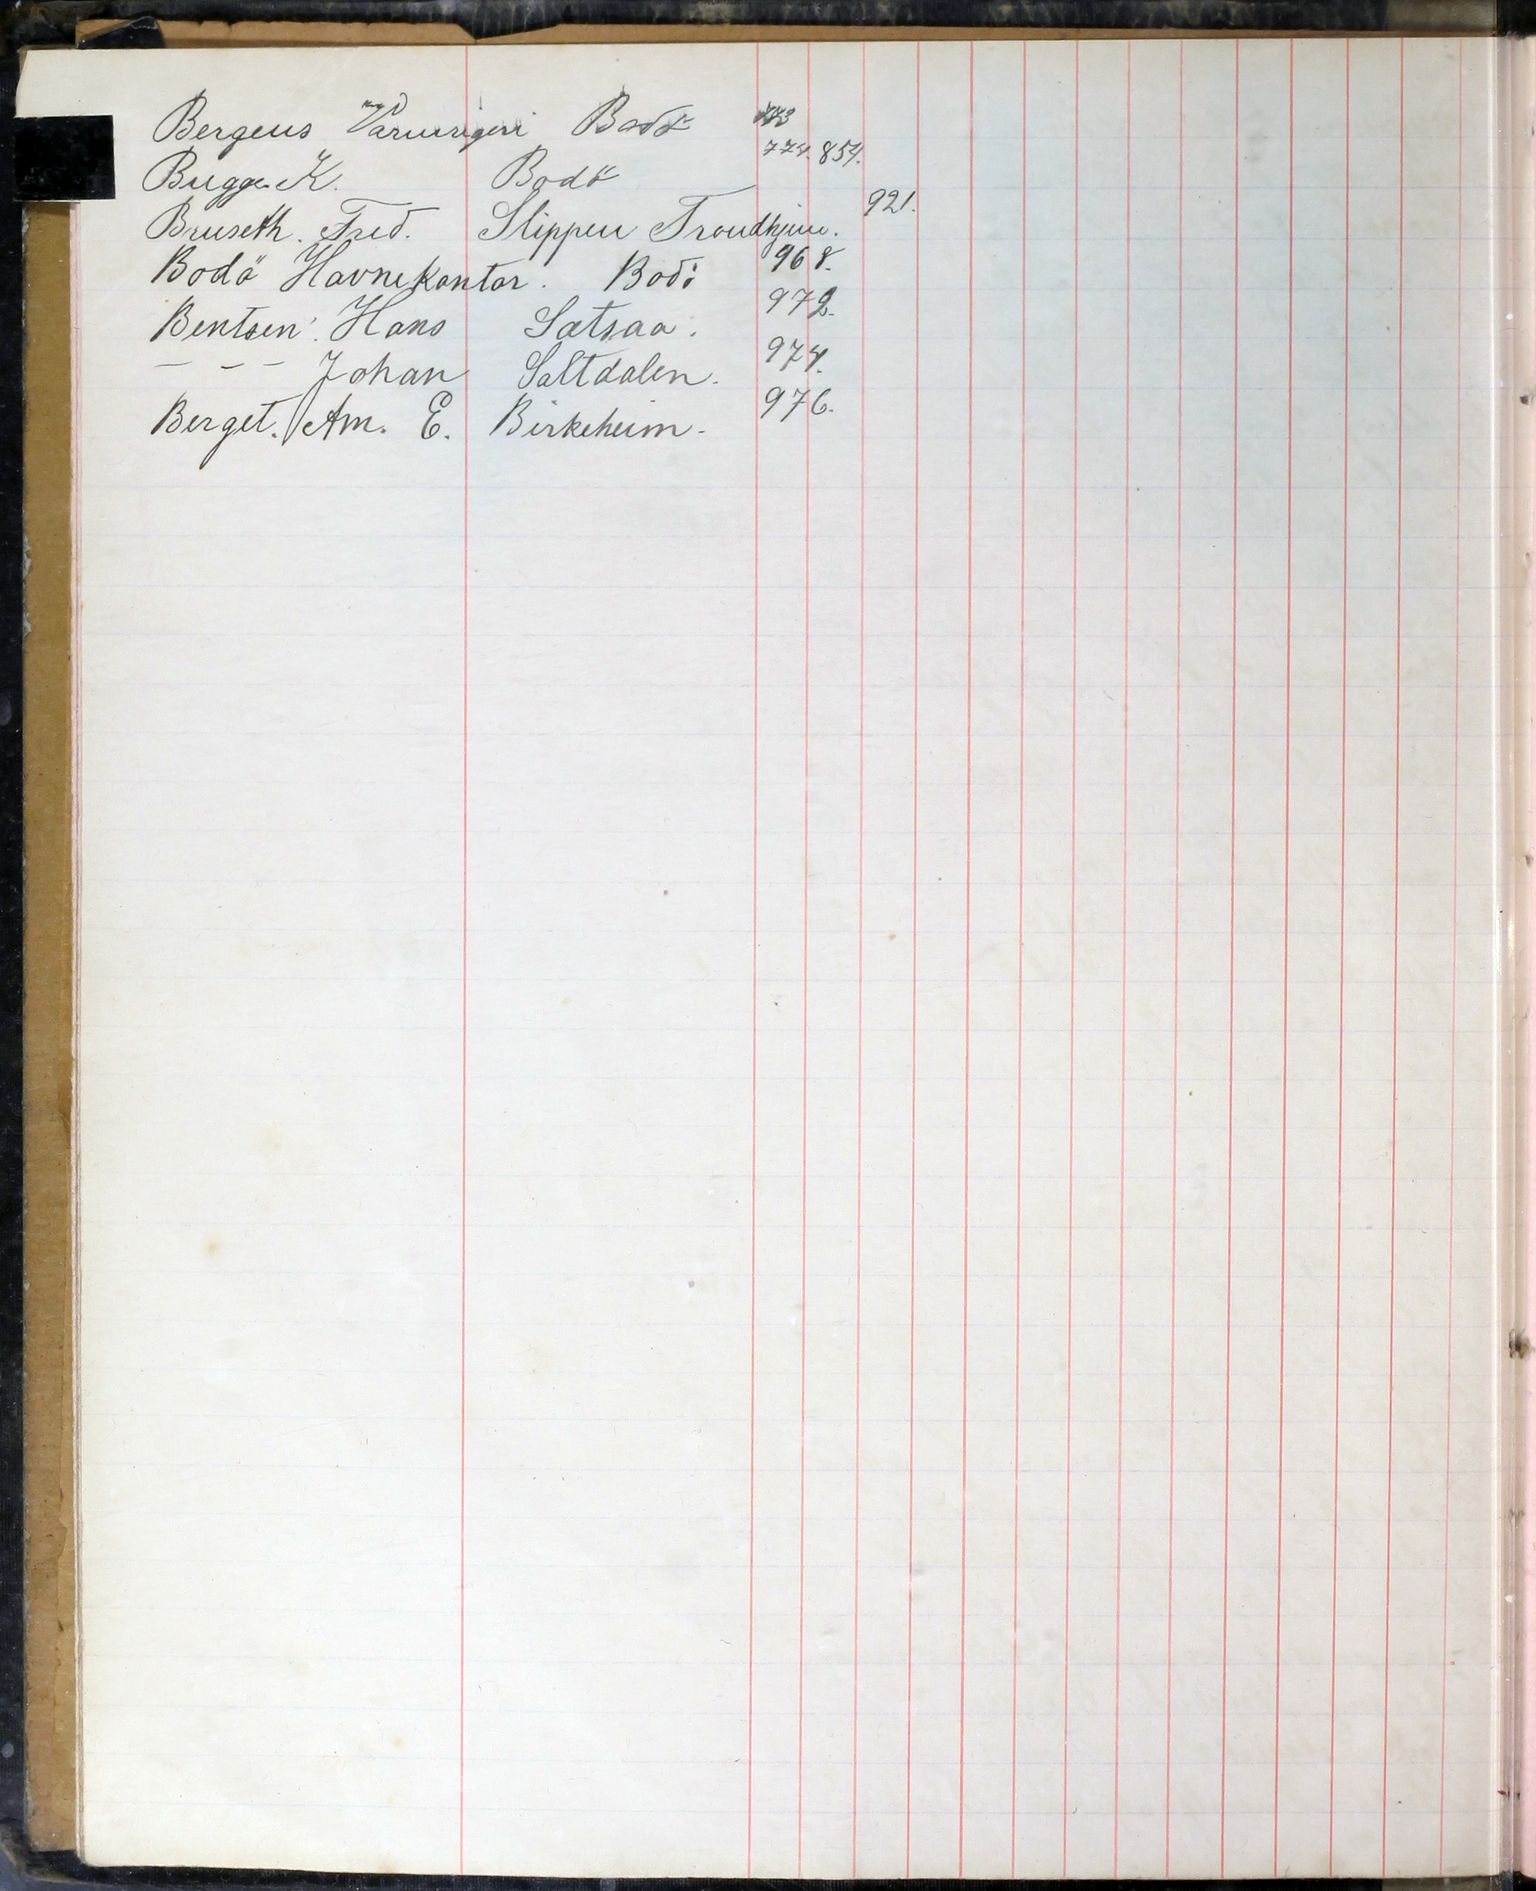 Bergens Bodö
Bugge K. Bodö 774. 854.
Bruseth. Fred. Slippen Trondhjem. 921.
Bodö Havnekontor. Bodö 968.
Bentsen. Hans Satsaa. 972.
- - - Johan Saltdalen. 974.
Berget. Am. E. Birkeheim. 976.